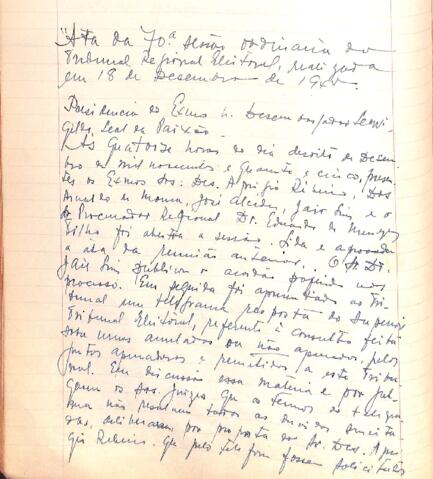 "Ata da 70ª sessão ordinaria do
Tribunal Regional Eleitoral, realizada
em 18 de Dezembro de 1945.
Presidencia do Exmo Sr. Desembargador
Gildo, Leal da Paixão.
As quatorze horas do dia dezoito de Dezem-
bro de mil novecentos e quarenta e cinco, presen-
tes os Exmos Srs. Des. Aprigio Ribeiro, Drs
de Moura, José Alcides, Jair Lins e o
Procurador Regional Dr. Eduardo de Menezes
Filho foi aberta a sessão. Lida e aprovada
a ata da reunião anterior. O Sr. Dr.
Jair Lins publicou o acordão nos
processo. Em seguida foi apresentado ao Tri-
bunal um telegrama resposta do Superior
Tribunal Eleitoral, referente á consulta feita
sobre urnas anuladas ou não apuradas, pelas
juntas apuradoras e remetidas a este Tribu-
nal. Em discussão essa materia e por jul-
garem os Srs. Juizes que os termos do telegra-
ma não resolvem todas as duvidas suscita-
das, deliberaram por proposta do Sr. Des. Apri-
gio Ribeiro, que pelo telefone fossem solicitados